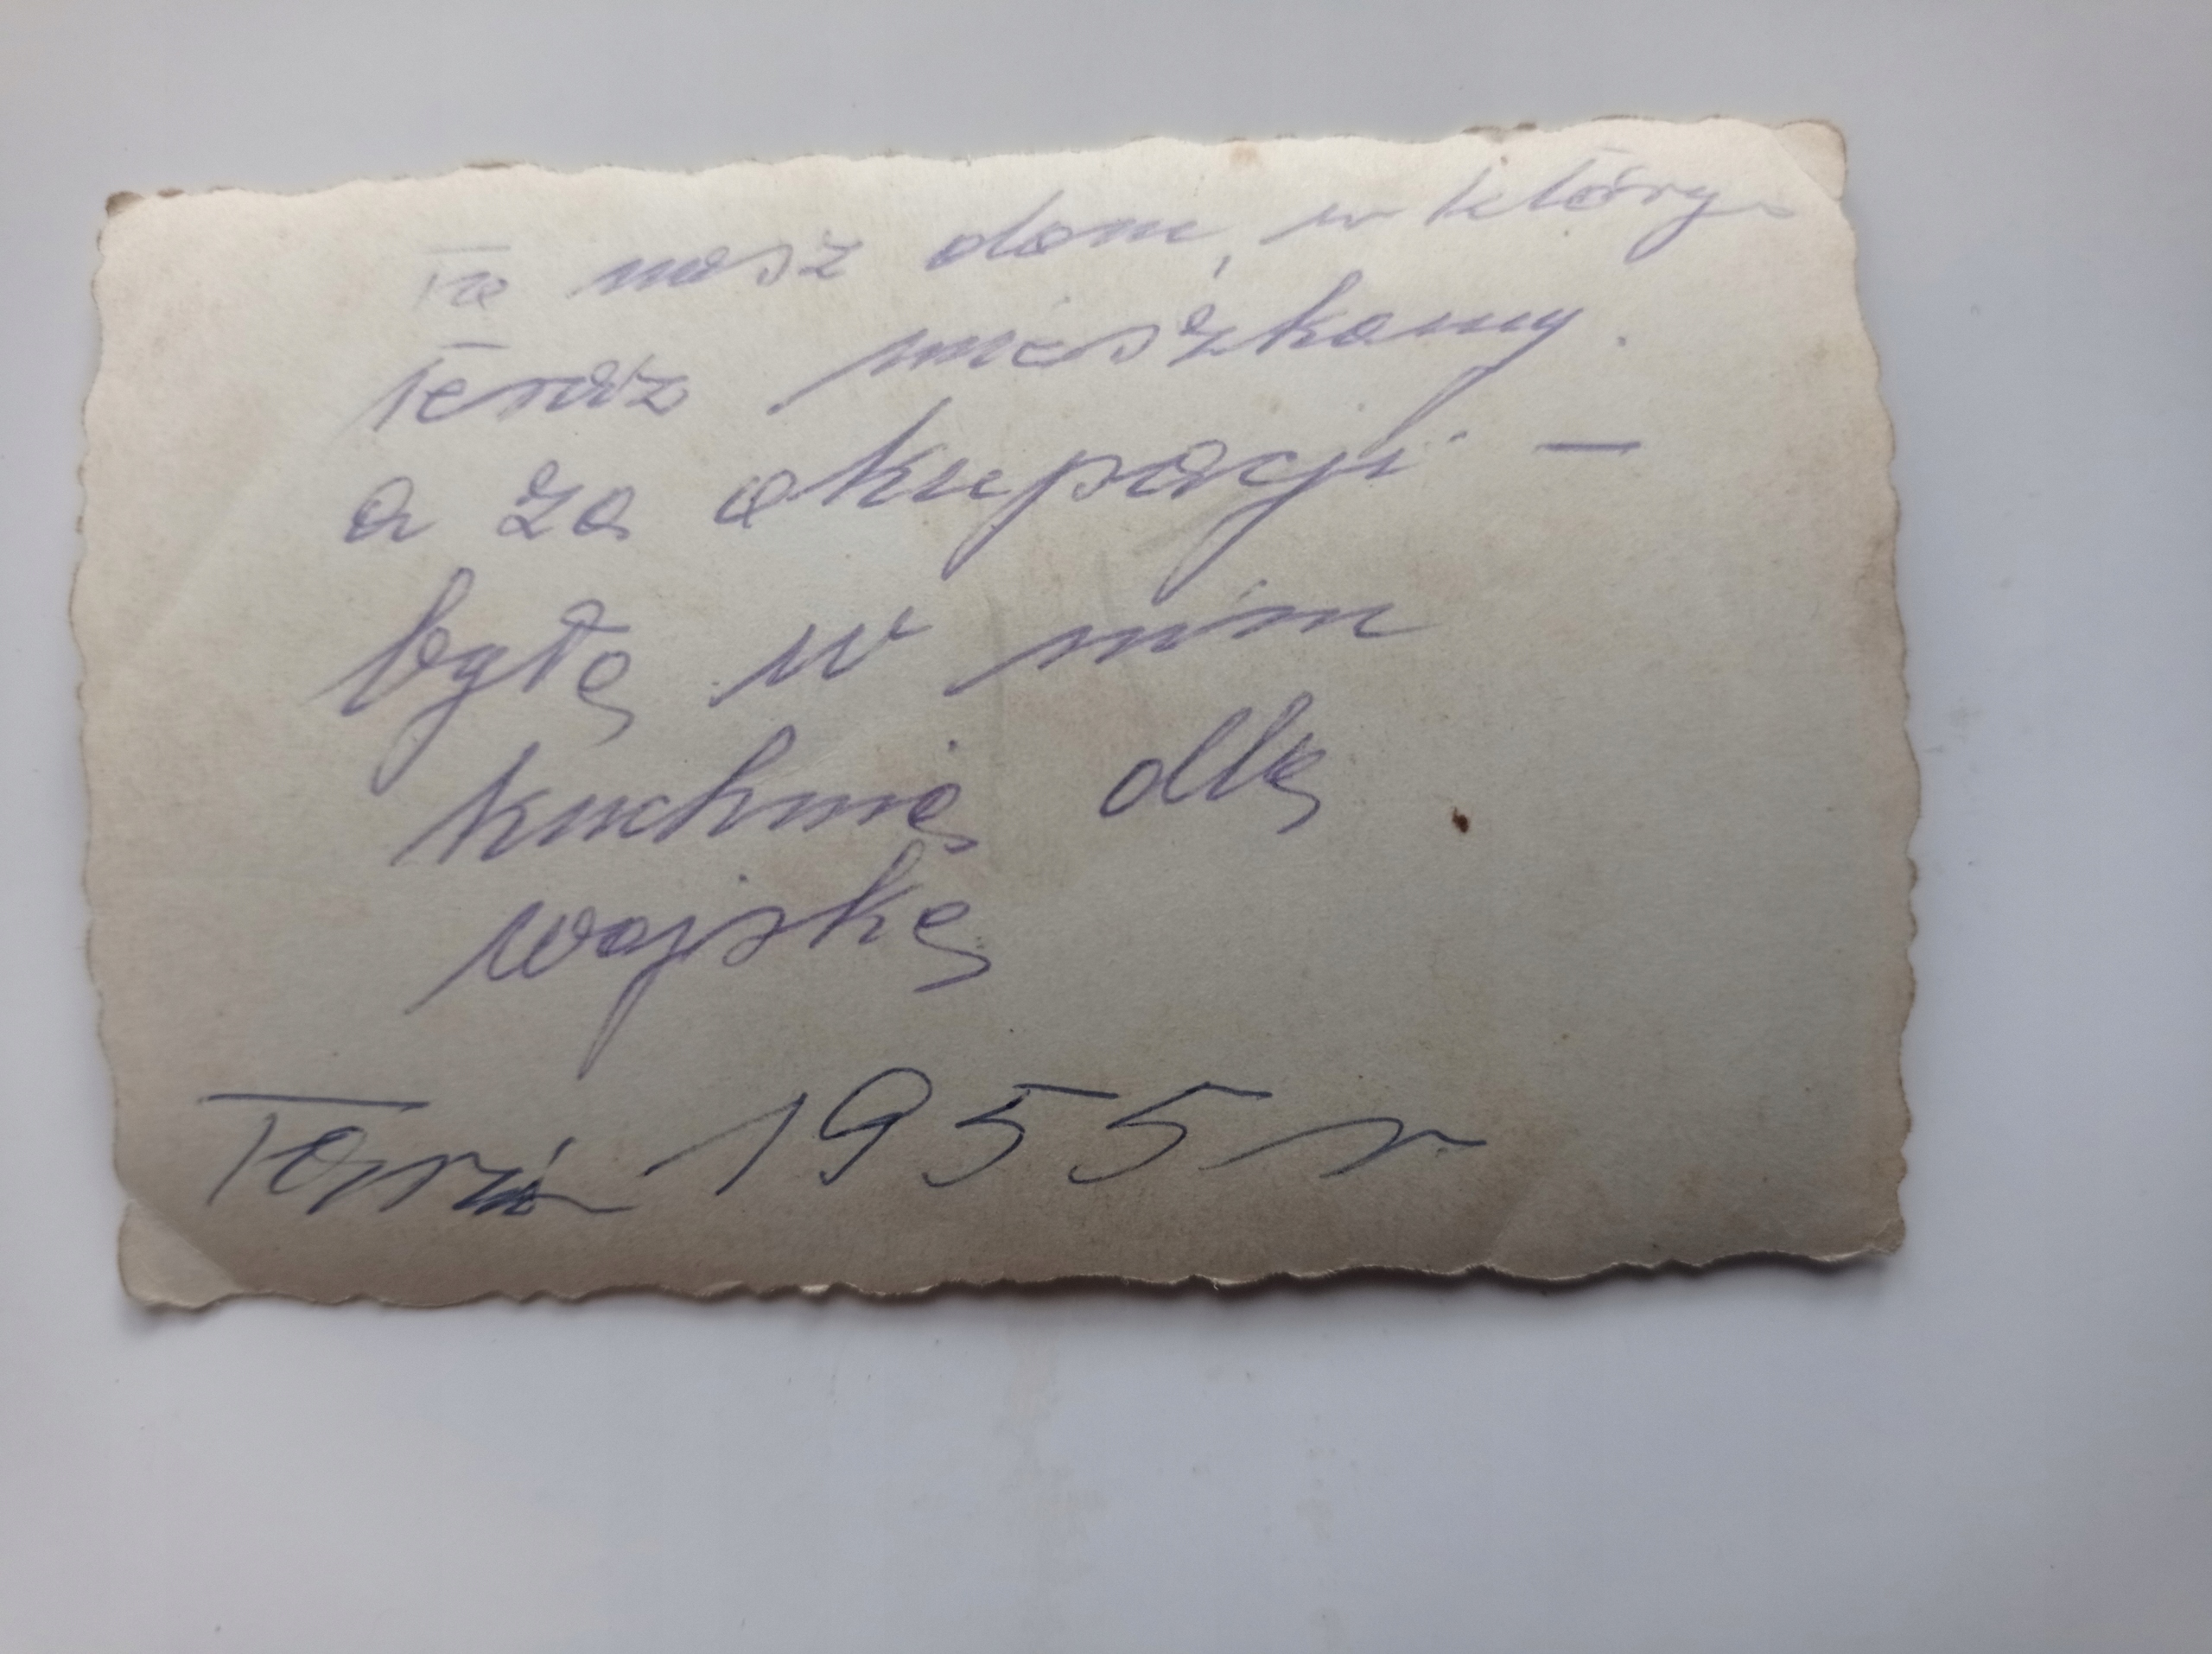 To nasz dom, w którym
teraz mieszkamy.
a za okupacji —
była w nim
kuchnia dla
wojska
Toruń 1955 r